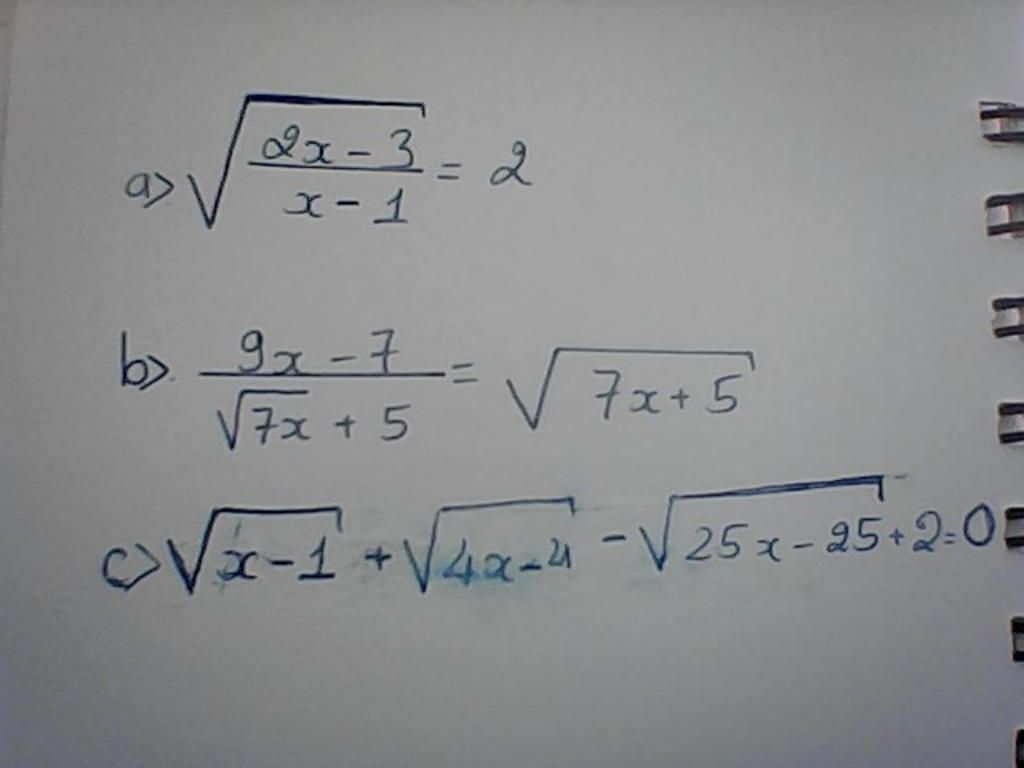 a> √((2x - 3)/(x - 1)) = 2
b> (9x - 7)/(√7x + 5) = √(7x + 5)
c> √(x - 1) + √(4x - 4) - √(25x - 25) + 2 = 0